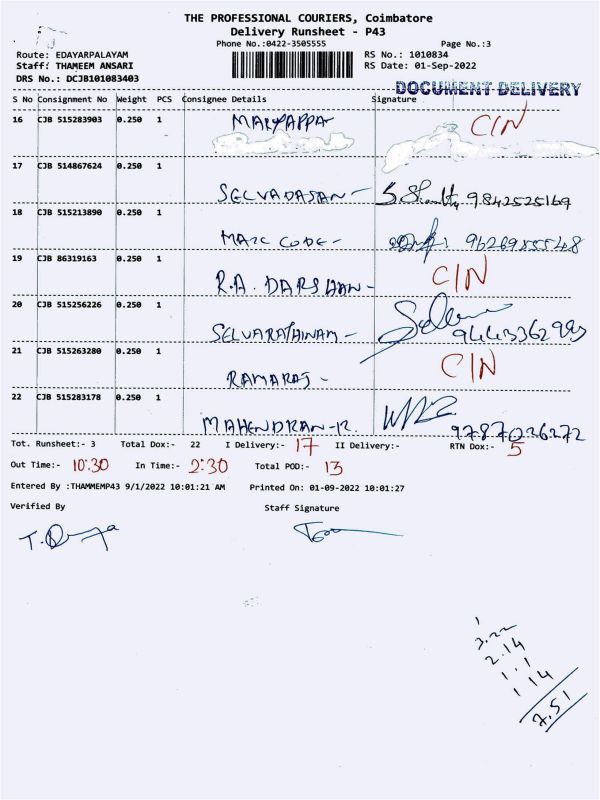 THE PROFESSIONAL COURIERS, Coimbatore
Delivery Runsheet - P43
Phone No.:0422-3505555
Page No.:3
Route: EDAYARPALAYAM
RS No.: 1010834
Staff: THAMEEM ANSARI
RS Date: 01-Sep-2022
DRS No.: DCJB101083403
DOCUMENT DELIVERY
S No Consignment No Weight PCS Consignee Details Signature
16 CJB 515283903 0.250 1 MARYAPPA CIN
17 CJB 514867624 0.250 1
SELVADASAN - 9842525169
18 CJB 515213890 0.250 1
MARC CODE -
19 CJB 86319163 0.250 1 CIN
R.A. DARSHAN -
20 CJB 515256226 0.250 1
SELVARATHINAM - 9443362993
21 CJB 515263280 0.250 1 CIN
RAMARAJ -
22 CJB 515283178 0.250 1
MAHENDRAN-R. 9787026272
Tot. Runsheet:- 3 Total Dox:- 22 I Delivery:- 17 II Delivery:- RTN Dox:- 5
Out Time:- 10:30 In Time:- 2:30 Total POD:- 13
Entered By :THAMMEMP43 9/1/2022 10:01:21 AM Printed On: 01-09-2022 10:01:27
Verified By Staff Signature
1
3.22
2.14
1.1
1 14
7.51